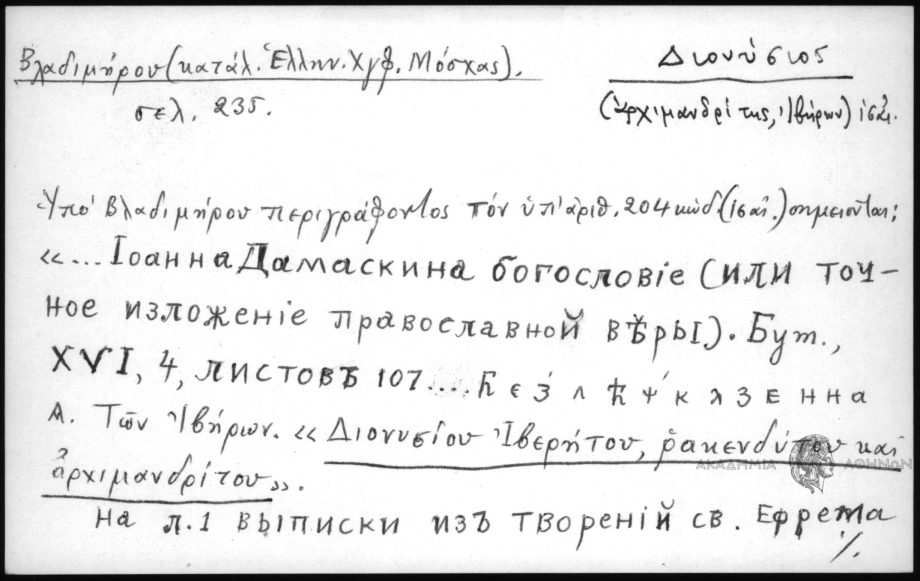 Βλαδιμήρου (κατάλ. Ἑλλην. Χγφ. Μόσχας).
σελ. 235.
Διονύσιος
(ἀρχιμανδρίτης, Ἰβήρων) ις΄αἰ.
Ὑπὸ Βλαδιμήρου περιγράφοντος τὸν ὑπ' ἀριθ. 204 κώδ (ις αἰ.) σημειοῦται;
«... Іоанна Дамаскина богословіе (или точ-
ное изложеніе православной вѣры). Бум.,
XVI, 4, листовъ 107....
Α. Τῶν Ἰβήρων. «Διονυσίου Ἰβερήτου, ῥακενδύτου καὶ
ἀρχιμανδρίτου».
ΑΚΑΔΗΜΙΑ ΑΘΗΝΩΝ
на л. 1 выписки изъ твореній св. Ефрема
./.